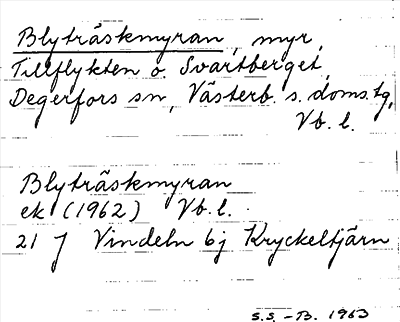 Blyträskmyran, myr,
Tillflykten o. Svartberget,
Degerfors sn, Västerb. s. doms. tg,
Vb. l.
Blyträskmyran
ek (1962) Vb. l.
21 J Vindeln 6j Kryckeltjärn
S.S. -B. 1963